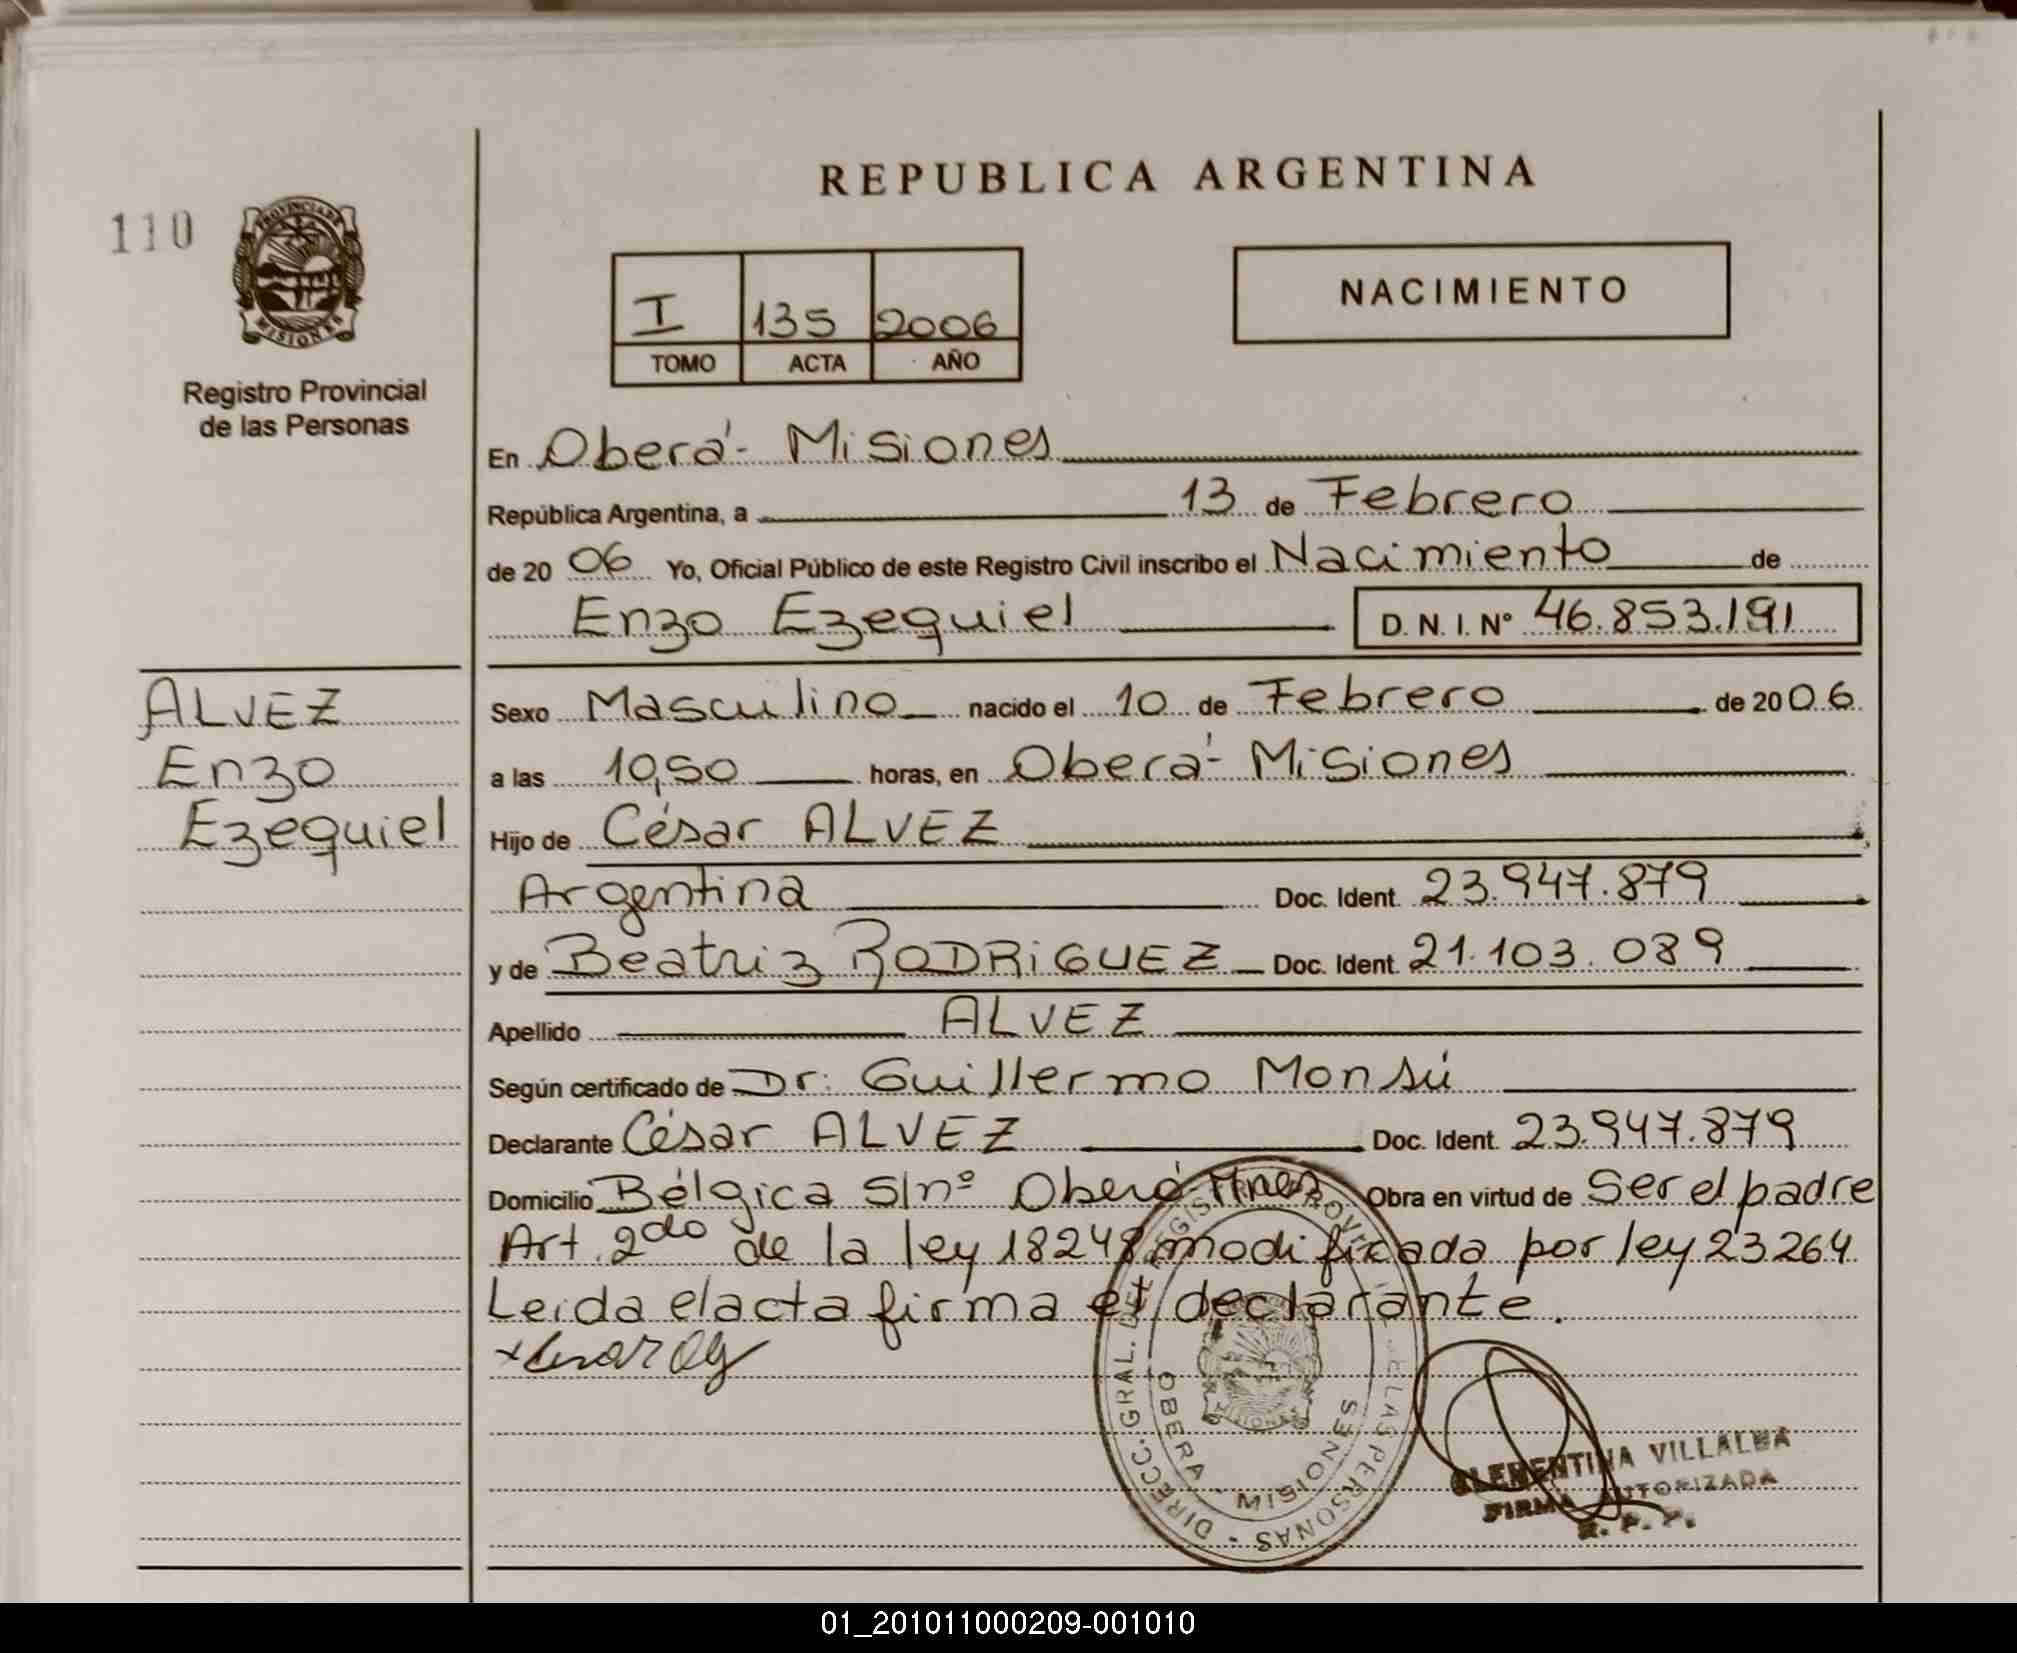 REPUBLICA ARGENTINA
110
PROVINCIA DE
MISIONES
Registro Provincial
de las Personas
I 135 2006
TOMO ACTA AÑO
NACIMIENTO
En Oberá - Misiones
República Argentina, a 13 de Febrero
de 20 06 Yo, Oficial Público de este Registro Civil inscribo el Nacimiento de
Enzo Ezequiel D. N. I. N° 46.853.191
ALVEZ
Enzo
Ezequiel
Sexo Masculino nacido el 10 de Febrero de 2006
a las 10,50 horas, en Oberá - Misiones
Hijo de César ALVEZ
Argentina Doc. Ident. 23.947.879
y de Beatriz RODRIGUEZ Doc. Ident. 21.103.089
Apellido ALVEZ
Según certificado de Dr: Guillermo Monsú
Declarante César ALVEZ Doc. Ident. 23.947.879
Domicilio Bélgica S/nº Oberá Mnes Obra en virtud de Ser el padre
Art. 2do de la ley 18248 modificada por ley 23264
Leida el acta firma el declarante.
DIRECC. GRAL. DEL REGISTRO PROVINCIAL DE LAS PERSONAS
OBERA - MISIONES
CLEMENTINA VILLALBA
FIRMA AUTORIZADA
R. P. P.
01_201011000209-001010